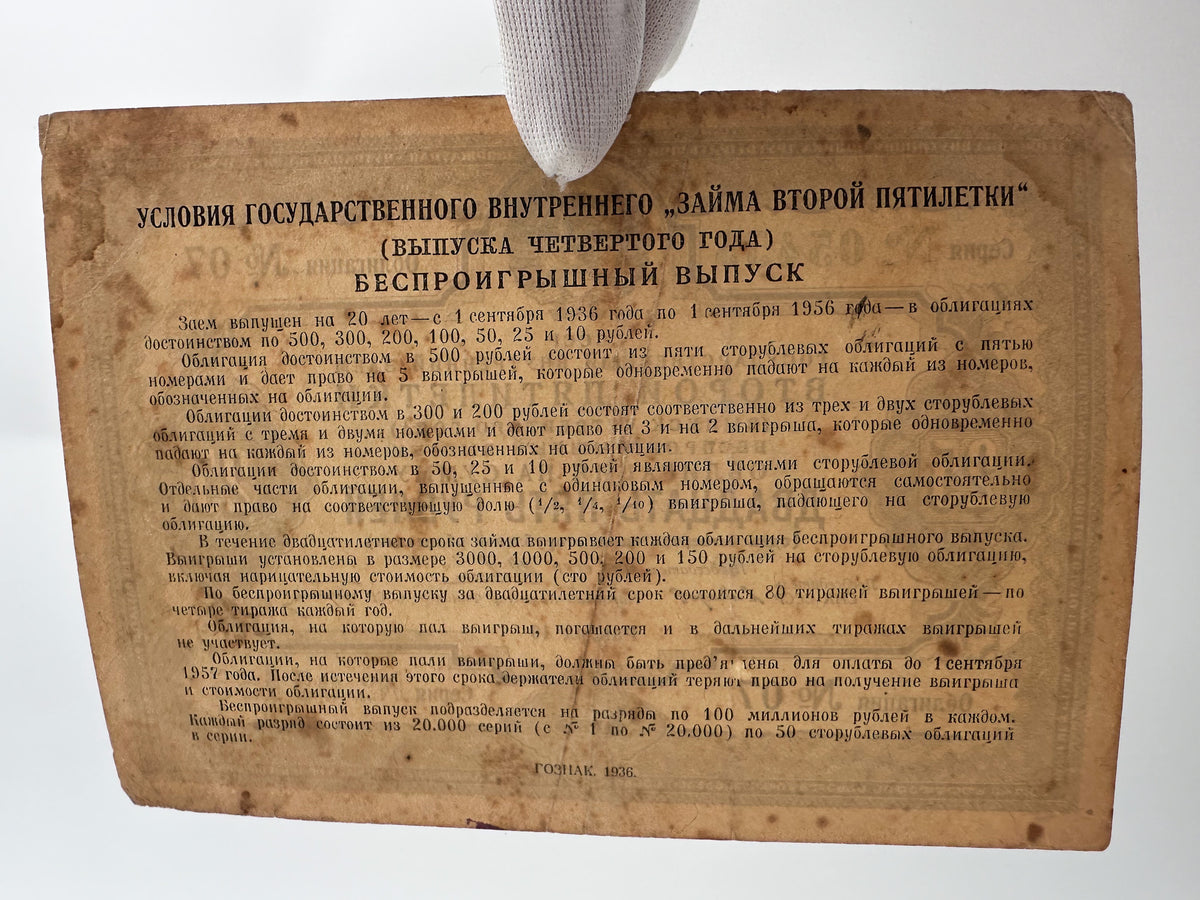 УСЛОВИЯ ГОСУДАРСТВЕННОГО ВНУТРЕННЕГО „ЗАЙМА ВТОРОЙ ПЯТИЛЕТКИ“
(ВЫПУСКА ЧЕТВЕРТОГО ГОДА)
БЕСПРОИГРЫШНЫЙ ВЫПУСК
Заем выпущен на 20 лет—с 1 сентября 1936 года по 1 сентября 1956 года—в облигациях
достоинством по 500, 300, 200, 100, 50, 25 и 10 рублей.
Облигация достоинством в 500 рублей состоит из пяти сторублевых облигаций с пятью
номерами и дает право на 5 выигрышей, которые одновременно падают на каждый из номеров,
обозначенных на облигации.
Облигации достоинством в 300 и 200 рублей состоят соответственно из трех и двух сторублевых
облигаций с тремя и двумя номерами и дают право на 3 и на 2 выигрыша, которые одновременно
падают на каждый из номеров, обозначенных на облигации.
Облигации достоинством в 50, 25 и 10 рублей являются частями сторублевой облигации.
Отдельные части облигации, выпущенные с одинаковым номером, обращаются самостоятельно
и дают право на соответствующую долю (1/2, 1/4, 1/10) выигрыша, падающего на сторублевую
облигацию.
В течение двадцатилетнего срока займа выигрывает каждая облигация беспроигрышного выпуска.
Выигрыши установлены в размере 3000, 1000, 500, 200 и 150 рублей на сторублевую облигацию,
включая нарицательную стоимость облигации (сто рублей).
По беспроигрышному выпуску за двадцатилетний срок состоится 80 тиражей выигрышей—по
четыре тиража каждый год.
Облигация, на которую пал выигрыш, погашается и в дальнейших тиражах выигрышей
не участвует.
Облигации, на которые пали выигрыши, должны быть пред'явлены для оплаты до 1 сентября
1957 года. После истечения этого срока держатели облигаций теряют право на получение выигрыша
и стоимости облигации.
Беспроигрышный выпуск подразделяется на разряды по 100 миллионов рублей в каждом.
Каждый разряд состоит из 20.000 серий (с № 1 по № 20.000) по 50 сторублевых облигаций
в серии.
ГОЗНАК. 1936.